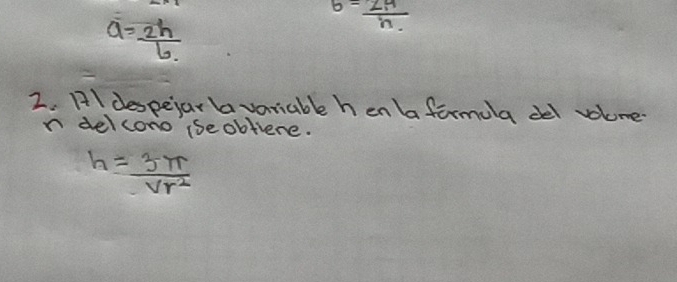 b = 2A / h.
a = 2h / b.
2. Al despejar la variable h en la fórmula del volume-
n del cono, se obtiene.
h = 3π / Vr²